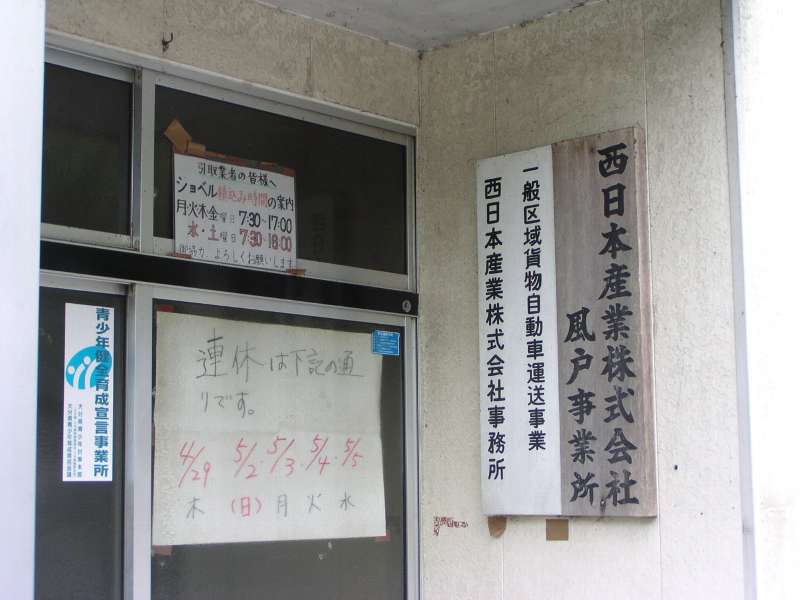 引取業者の皆様へ
ショベル積込み時間の案内
月火木金曜日7:30~17:00
水・土曜日7:30~16:00
御協力、よろしくお願いします
連休は下記の通
りです。
4/29 5/2 5/3 5/4 5/5
木 (日) 月 火 水
青少年健全育成宣言事業所
西日本産業株式会社
風戸事業所
一般区域貨物自動車運送事業
西日本産業株式会社事務所